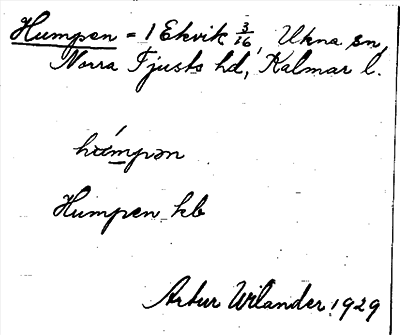 Humpen = 1 Ekvik 3/16, Ukna sn,
Norra Tjusts hd, Kalmar l.
húmpən
Humpen kb
Artur Wilander 1929